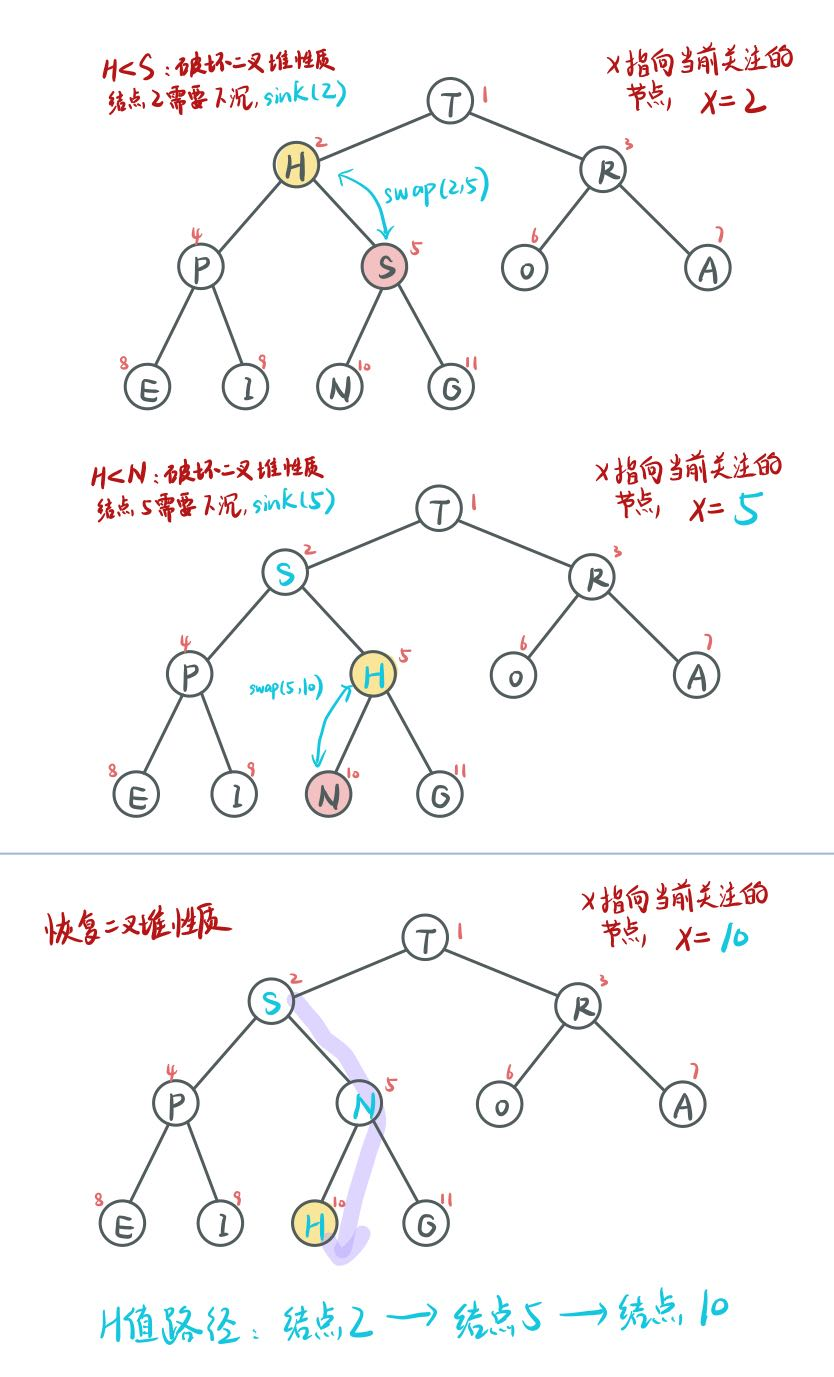 H<S：破坏二叉堆性质
结点2需要下沉，sink(2)
X指向当前关注的
节点， X=2
T 1
H 2
R 3
swap(2,5)
P 4
S 5
O 6
A 7
E 8
I 9
N 10
G 11
H<N：破坏二叉堆性质
结点5需要下沉，sink(5)
X指向当前关注的
节点， X=5
T 1
S 2
R 3
P 4
H 5
O 6
A 7
swap(5,10)
E 8
I 9
N 10
G 11
恢复二叉堆性质
X指向当前关注的
节点， X=10
T 1
S 2
R 3
P 4
N 5
O 6
A 7
E 8
I 9
H 10
G 11
H值路径：结点2→结点5→结点10